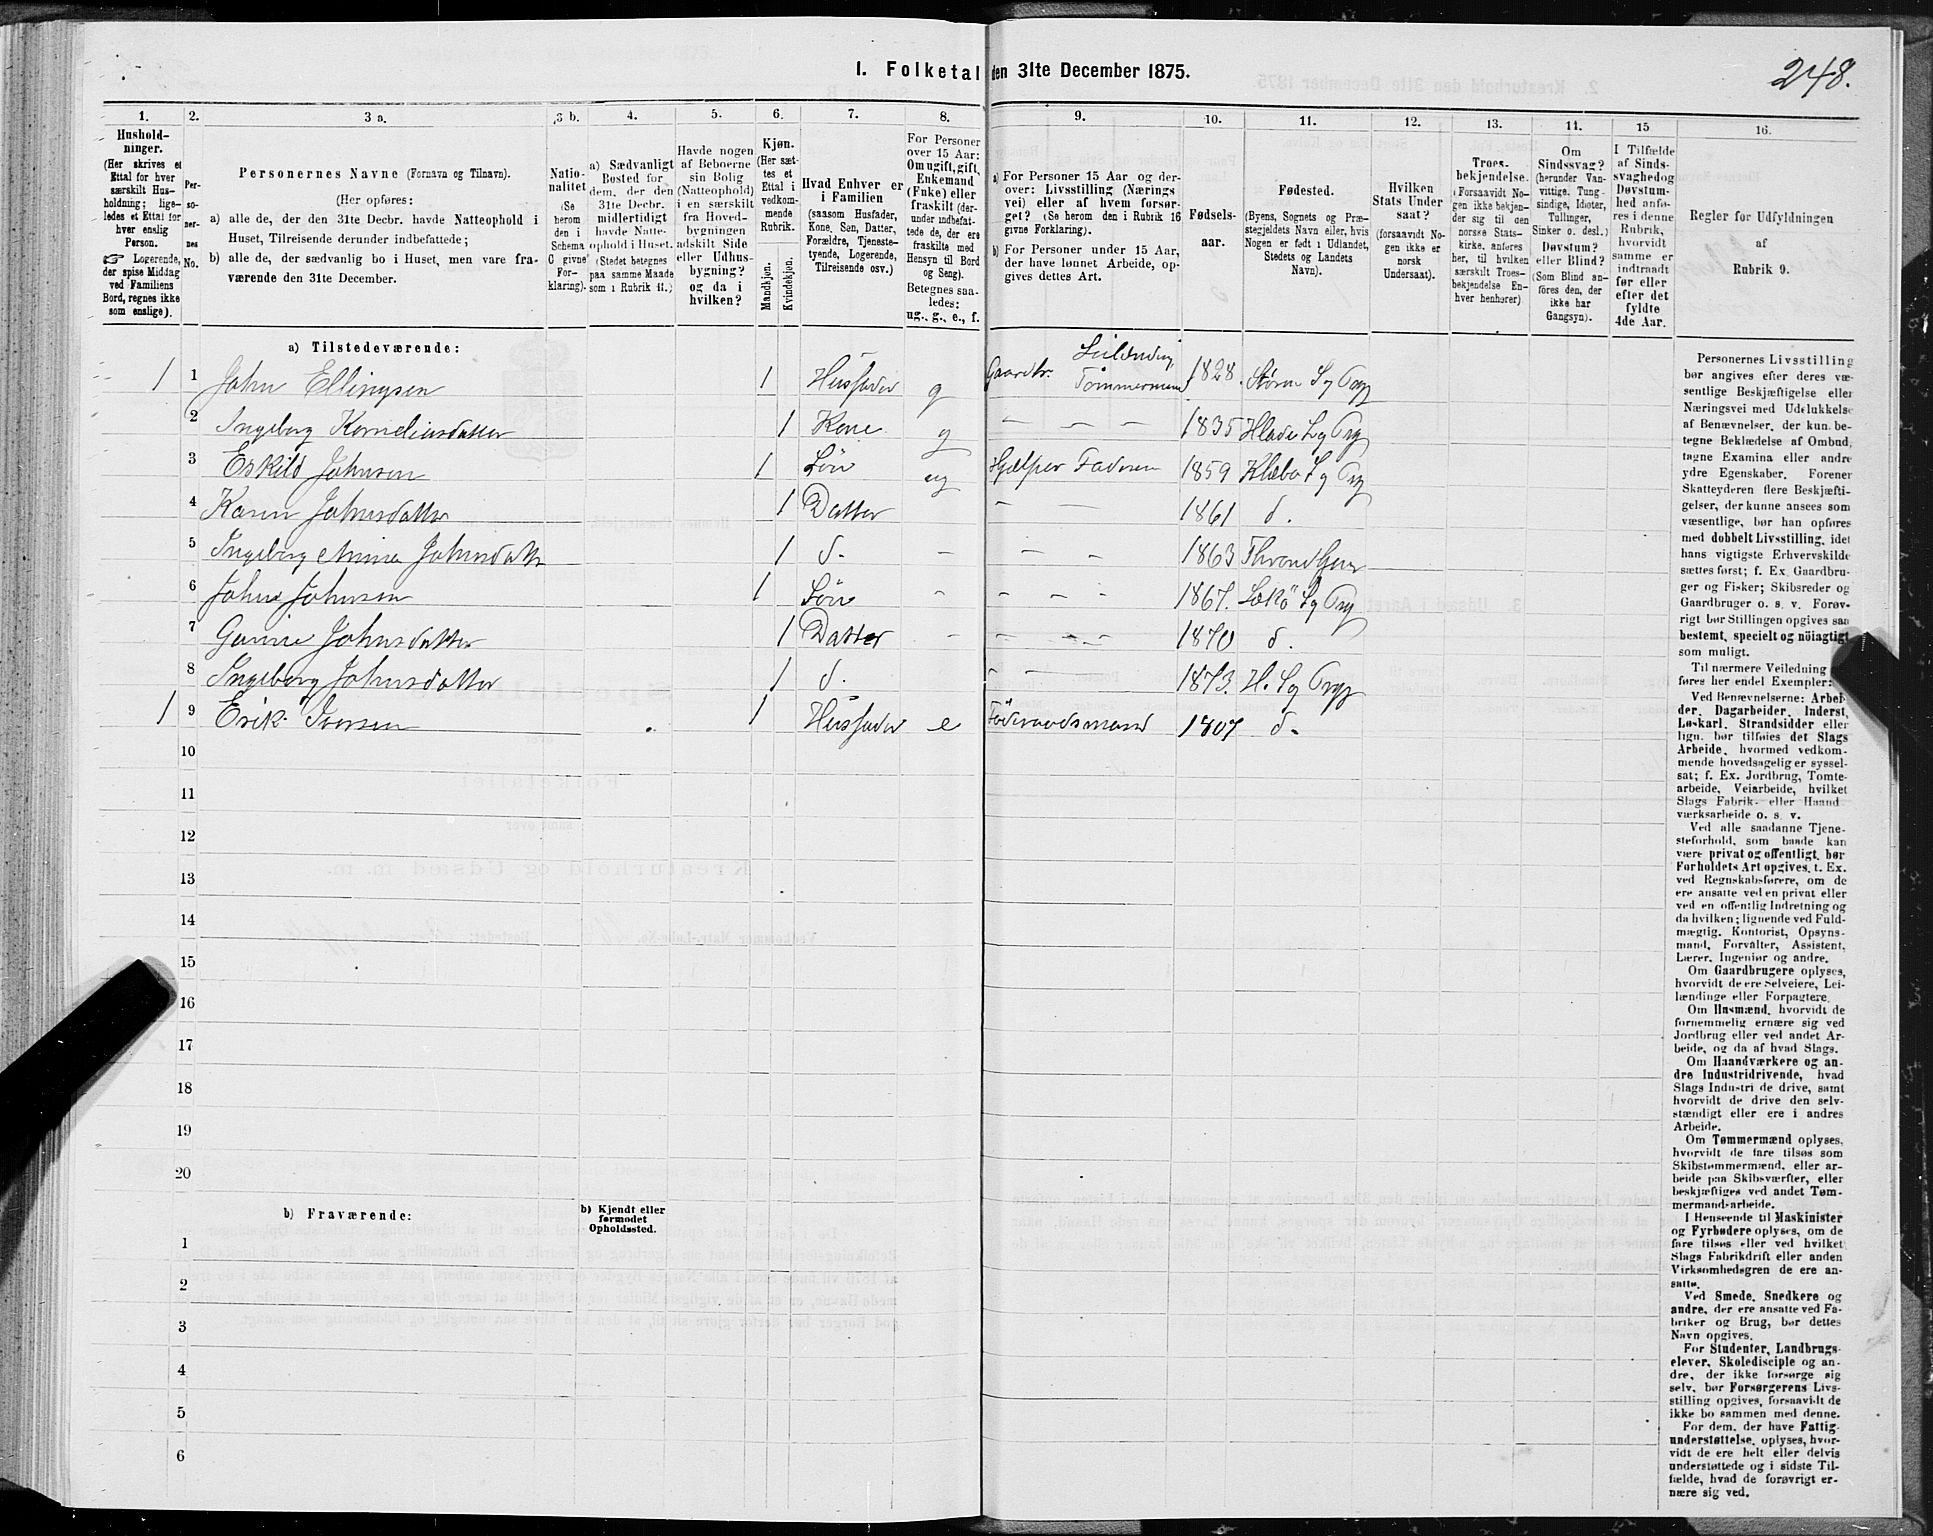 I. Folketal den 31te December 1875.
248.
1.
Hushold-
ninger.
(Her skrives et
Ettal for hver
særskilt Hus-
holdning; lige-
ledes et Ettal for
hver enslig
Person.
☞ Logerende,
der spise Middag
ved Familiens
Bord, regnes ikke
som enslige).
2.
Per-
so-
ner-
nes
No.
3 a.
Personernes Navne (Fornavn og Tilnavn).
(Her opføres:
a) alle de, der den 31te Decbr. havde Natteophold i
Huset, Tilreisende derunder indbefattede;
b) alle de, der sædvanlig bo i Huset, men vare fra-
værende den 31te December.
3 b.
Natio-
nalitet
(Se
herom
den i
Schema
C givne
For-
klaring).
4.
a) Sædvanligt
Bosted for
dem, der den
31te Decbr.
midlertidigt
havde Natte-
ophold i Huset.
(Stedet betegnes
paa samme Maade
som i Rubrik 11.)
5.
Havde nogen
af Beboerne
sin Bolig
(Natteophold)
i en særskilt
fra Hoved-
bygningen
adskilt Side
eller Udhus-
bygning?
og da i
hvilken?
6.
Kjøn.
(Her sæt-
tes et
Ettal i
vedkom-
mende
Rubrik.
Mandkjøn.
Kvindekjøn.
7.
Hvad Enhver er
i Familien
(saasom Husfader,
Kone, Søn, Datter,
Forældre, Tjeneste-
tyende, Logerende,
Tilreisende osv.)
8.
For Personer
over 15 Aar:
Om ugift, gift,
Enkemand
(Enke) eller
fraskilt (der-
under indbefat-
tede de, der ere
fraskilte med
Hensyn til Bord
og Seng).
Betegnes saa-
ledes:
ug., g., e., f.
9.
a) For Personer 15 Aar og der-
over: Livsstilling (Nærings
vei) eller af hvem forsør-
get? (Se herom den i Rubrik 16
givne Forklaring).
b) For Personer under 15 Aar,
der have lønnet Arbeide, op-
gives dettes Art.
10.
Fødsels-
aar.
11.
Fødested.
(Byens, Sognets og Præ-
stegjeldets Navn eller, hvis
Nogen er født i Udlandet,
Stedets og Landets
Navn).
12.
Hvilken
Stats Under
saat?
(forsaavidt No-
gen ikke er
norsk
Undersaat).
13.
Troes-
bekjendelse.
(Forsaavidt No-
gen ikke bekjen-
der sig til den
norske Stats-
kirke, anføres
her, til hvilken
særskilt Troes-
bekjendelse En-
hver henhører).
14.
Om
Sindssvag?
(herunder Van-
vittige, Tung-
sindige, Idioter,
Tullinger,
Sinker o. desl.)
Døvstum?
eller Blind?
(Som Blind an-
føres den, der
ikke har
Gangsyn).
15
I Tilfælde
af Sinds-
svaghed og
Døvstum-
hed anfø-
res i denne
Rubrik,
hvorvidt
samme er
indtraadt
før eller
efter det
fyldte
4de Aar.
16.
Regler for Udfyldningen
af
Rubrik 9.
a) Tilstedeværende:
1 1 John Ellingsen 1 Husfader g Gaardbr. Leilending Tømmermand 1828. Støren S og Prg
2 Ingeborg Korneliusdatter 1 Kone g — — — 1835 Hlade S og Prg
3 Eskild Johnsen 1 Søn ug Hjælper Faderen 1859 Klæbo S og Prg
4 Karen Johnsdatter 1 Datter — — 1861 d.
5 Ingeborg Anna Johnsdatter 1 d. — — — 1863 Throndhjem
6 Johns Johnsen 1 Søn — — — 1867. Lekø S og Prg
7 Gurine Johnsdatter 1 Datter — — — 1870 d.
8 Ingeborg Johnsdatter 1 d. — — 1873. H. S og Prg
1 9 Erik Iversen 1 Husfader e Föderaadsmand 1807 d.
10
11
12
13
14
15
16
17
18
19
20
b) Fraværende:
b) Kjendt eller
formodet
Opholdssted.
1
2
3
4
5
6
Personernes Livsstilling
bør angives efter deres væ-
sentlige Beskjæftigelse eller
Næringsvei med Udelukkelse
af Benævnelser, der kun be-
tegne Beklædelse af Ombud,
tagne Examina eller andre
ydre Egenskaber. Forener
Skatteyderen flere Beskjæfti-
gelser, der kunne ansees som
væsentlige, bør han opføres
med dobbelt Livsstilling, idet
hans vigtigste Erhvervskilde
sættes først; f. Ex. Gaardbru-
ger og Fisker; Skibsreder og
Gaardbruger o. s. v. Forøv-
rigt bør Stillingen opgives saa
bestemt, specielt og nöiagtigt
som muligt.
Til nærmere Veiledning
føres her endel Exempler:
Ved Benævnelserne: Arbei-
der, Dagarbeider, Inderst,
Løskarl, Strandsidder eller
lign. bør tilføies det Slags
Arbeide, hvormed vedkom-
mende hovedsagelig er syssel-
sat; f. Ex. Jordbrug, Tomte-
arbeide, Veiarbeide, hvilket
Slags Fabrik- eller Haand
værksarbeide o. s. v.
Ved alle saadanne Tjene-
steforhold, som baade kan
være privat og offentligt, bør
Forholdets Art opgives, t. Ex.
ved Regnskabsførere, om de
ere ansatte ved en privat eller
ved en offentlig Indretning og
da hvilken; lignende ved Fuld-
mægtig, Kontorist, Opsyns-
mand, Forvalter, Assistent,
Lærer, Ingeniør og andre.
Om Gaardbrugere oplyses,
hvorvidt de ere Selveiere, Lei-
lændinge eller Forpagtere.
Om Husmænd, hvorvidt de
fornemmelig ernære sig ved
Jordbrug eller ved andet Ar-
beide, og da af hvad Slags.
Om Haandværkere og an-
dre Industridrivende, hvad
Slags Industri de drive, samt
hvorvidt de drive den selv-
stændigt eller ere i andres
Arbeide.
Om Tømmermænd oplyses,
hvorvidt de fare tilsøs som
Skibstømmermænd, eller ar-
beide paa Skibsværfter, eller
beskjæftiges ved andet Tøm-
mermandsarbeide.
I Henseende til Maskinister
og Fyrbødere oplyses, om de
fare tilsøs eller ved hvilket
Slags Fabrikdrift eller anden
Virksomhedsgren de ere an-
satte.
Ved Smede, Snedkere og
andre, der ere ansatte ved Fa-
briker og Brug, bør dettes
Navn opgives.
For Studenter, Landbrugs-
elever, Skoledisciple og an-
dre, der ikke forsørge sig
selv, bør Forsørgerens Livs-
stilling opgives, forsaavidt de
ikke bo sammen med denne.
For dem, der have Fattig-
understøttelse, oplyses, hvor-
vidt de ere helt eller delvis
understøttede og i sidste Til-
fælde, hvad de forøvrigt er-
nære sig ved.